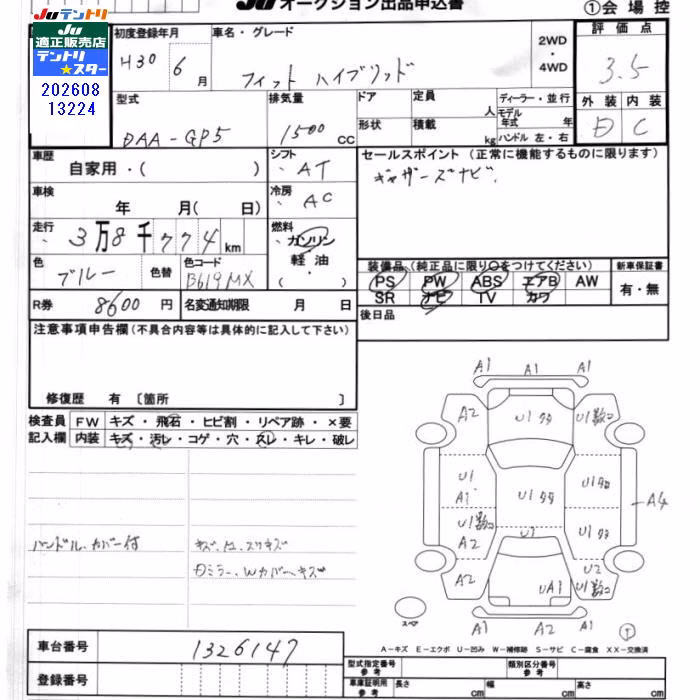 Juテントリ
適正販売店
テントリ
★スター
202608
13224
Ju オークション出品申込書
①会場控
初度登録年月
H30 6 月
車名・グレード
フィット ハイブリッド
2WD
・
4WD
評価点
3.5
外装 内装
D C
型式
DAA-GP5
排気量
1500 CC
ドア
定員
人
形状
積載
kg
ディーラー・並行
モデル年式 年
ハンドル 左・右
車歴
自家用・( )
シフト
AT
セールスポイント (正常に機能するものに限ります)
ギャザーズナビ.
車検
年 月( 日)
冷房
AC
走行
3万8千774 km
燃料
ガソリン
軽油
・
( )
色
ブルー
色替
色コード
B619MX
装備品(純正品に限り○をつけてください)
新車保証書
PS PW ABS エアB AW
有・無
SR ナビ TV カワ
R券 8600 円
名変通知期限 月 日
後日品
注意事項申告欄(不具合内容等は具体的に記入して下さい)
修復歴 有 〔箇所 〕
検査員
記入欄
FW キズ・飛石・ヒビ割・リペア跡・×要
内装 キズ・汚レ・コゲ・穴・スレ・キレ・破レ
ハンドル、カバー付
キズ、凹、スリキズ
Dミラー、Wカバー、キズ
A1 A1 A1
A2 U1タタ U1数コ
U1 A1 U1タタ U1タタ A4
U1数コ A2 U1 U1タタ
A2 UA1 U2 U1数コ
A1 A2 A1
スペア
A-キズ E-エクボ U-凹み W-補修跡 S-サビ C-腐食 XX-交換済
車台番号
1326147
登録番号
型式指定番号
参考
類別区分番号
参考
車庫証明用
参考
長さ cm 幅 cm 高さ cm